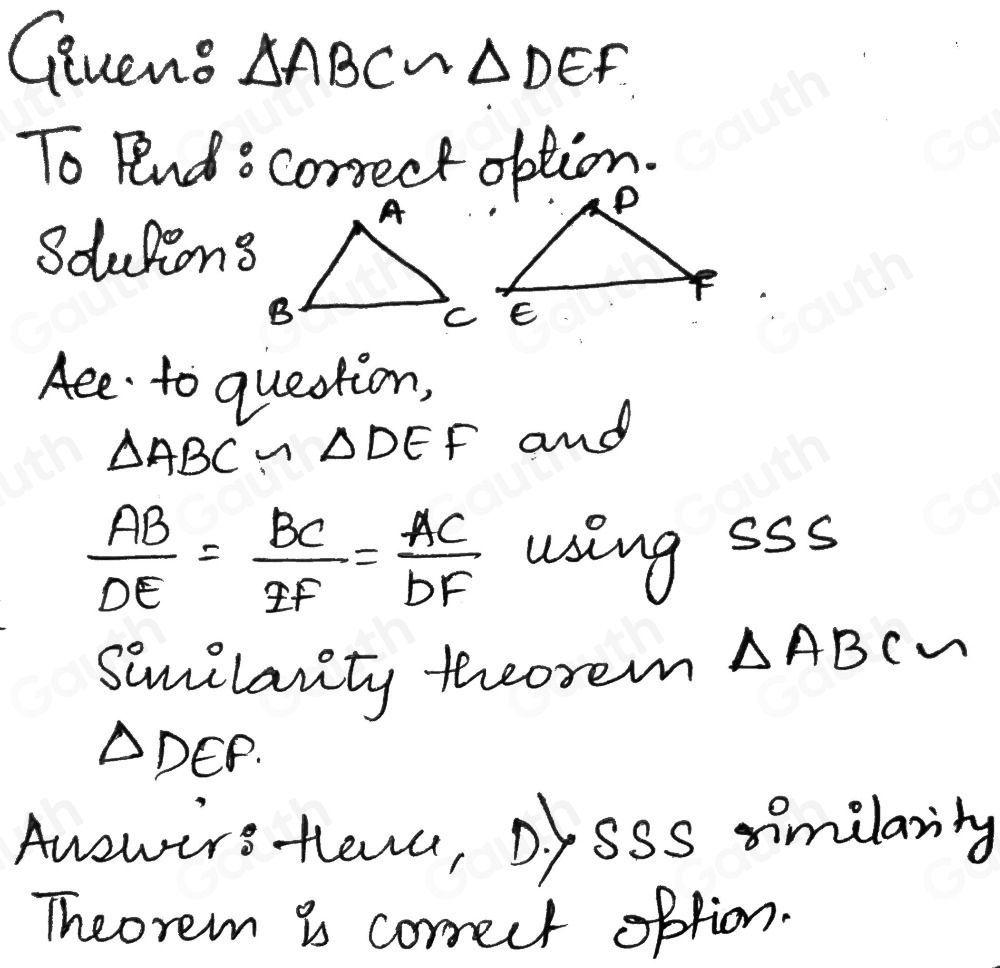 Given: ΔABC ~ ΔDEF
To Find: correct option.
Solution:
A
D
B
C
E
F
Acc. to question,
ΔABC ~ ΔDEF and
AB/DE = BC/EF = AC/DF using SSS
Similarity theorem ΔABC ~
ΔDEF.
Answer: Hence, D.) SSS similarity
Theorem is correct option.
Gauth